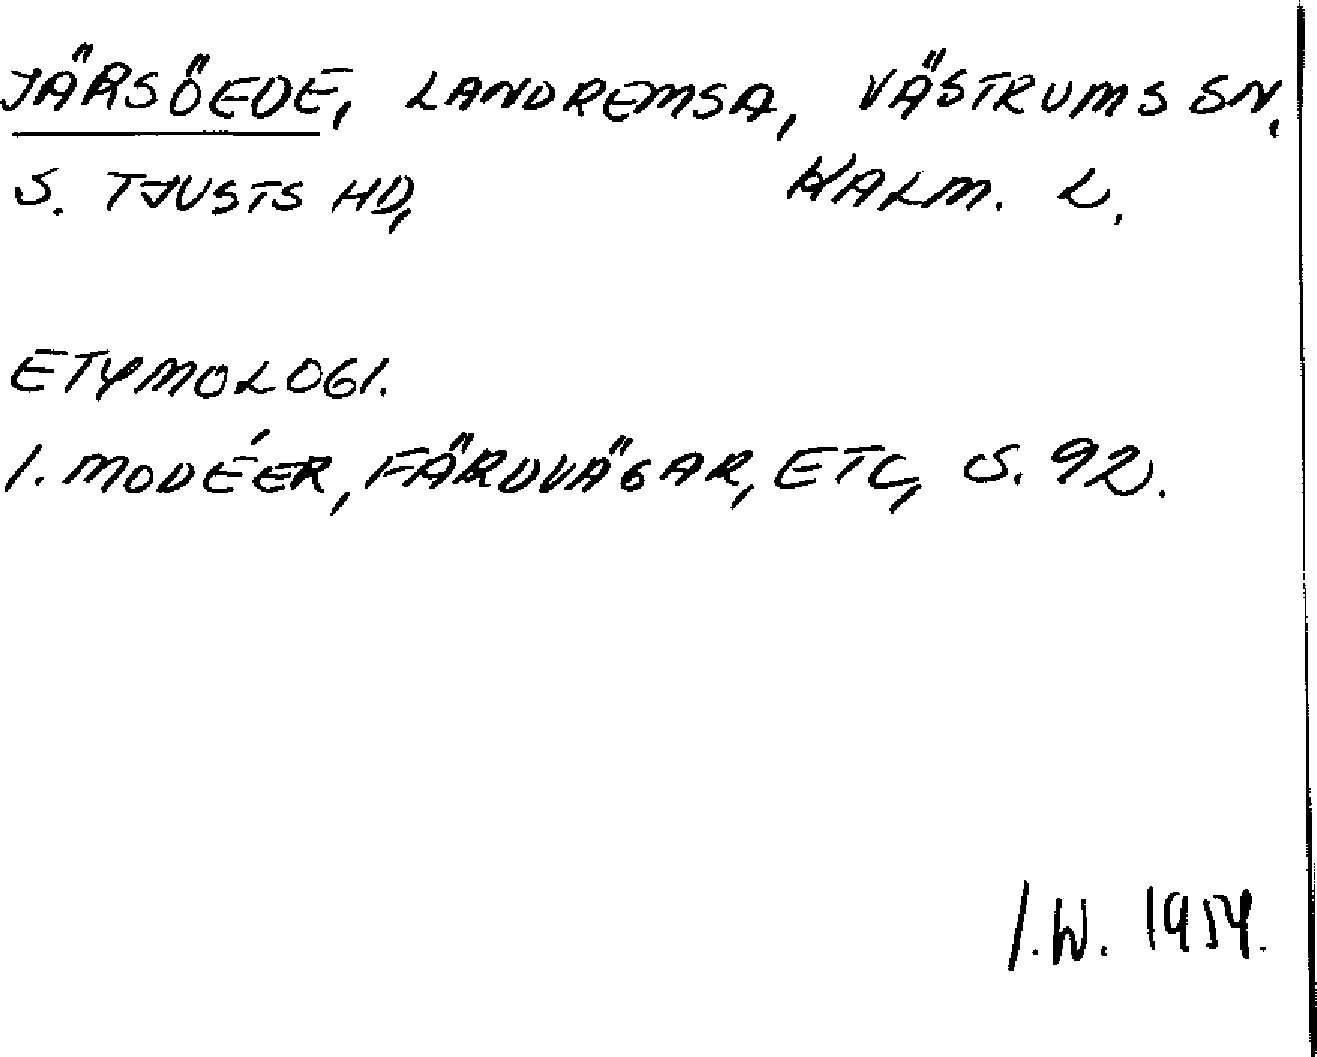 JÄRSÖEDE, LANDREMSA, VÄSTRUMS SN.
S. TJUSTS HD, KALM. L.
ETYMOLOGI.
I. MODÉER, FÄRDVÄGAR, ETC, S. 92.
I.W. 1954.